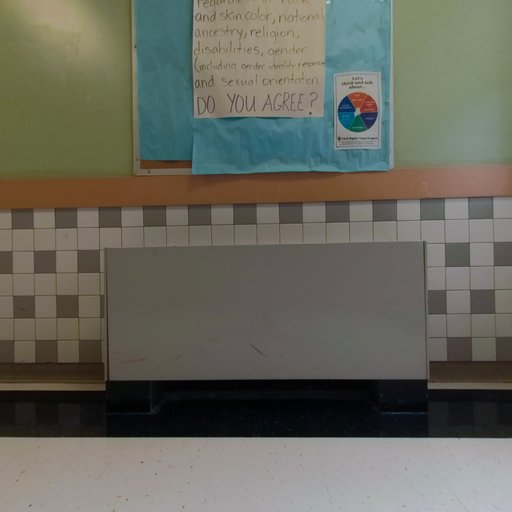 regardless of race
and skin color, national
ancestry, religion,
disabilities, gender
(including gender identity & expression)
and sexual orientation
DO YOU AGREE?
Let's
think and talk
about...